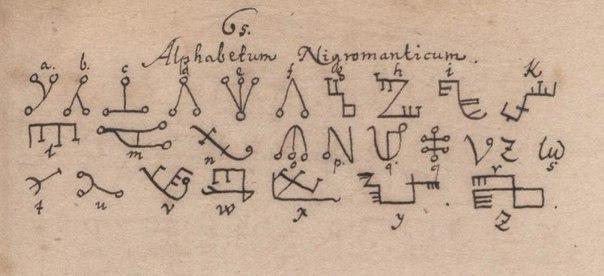 65.
Alphabetum Nigromanticum.
a. b. c d e f g h i K
l m n o p. q. q r s
t u v w x y z